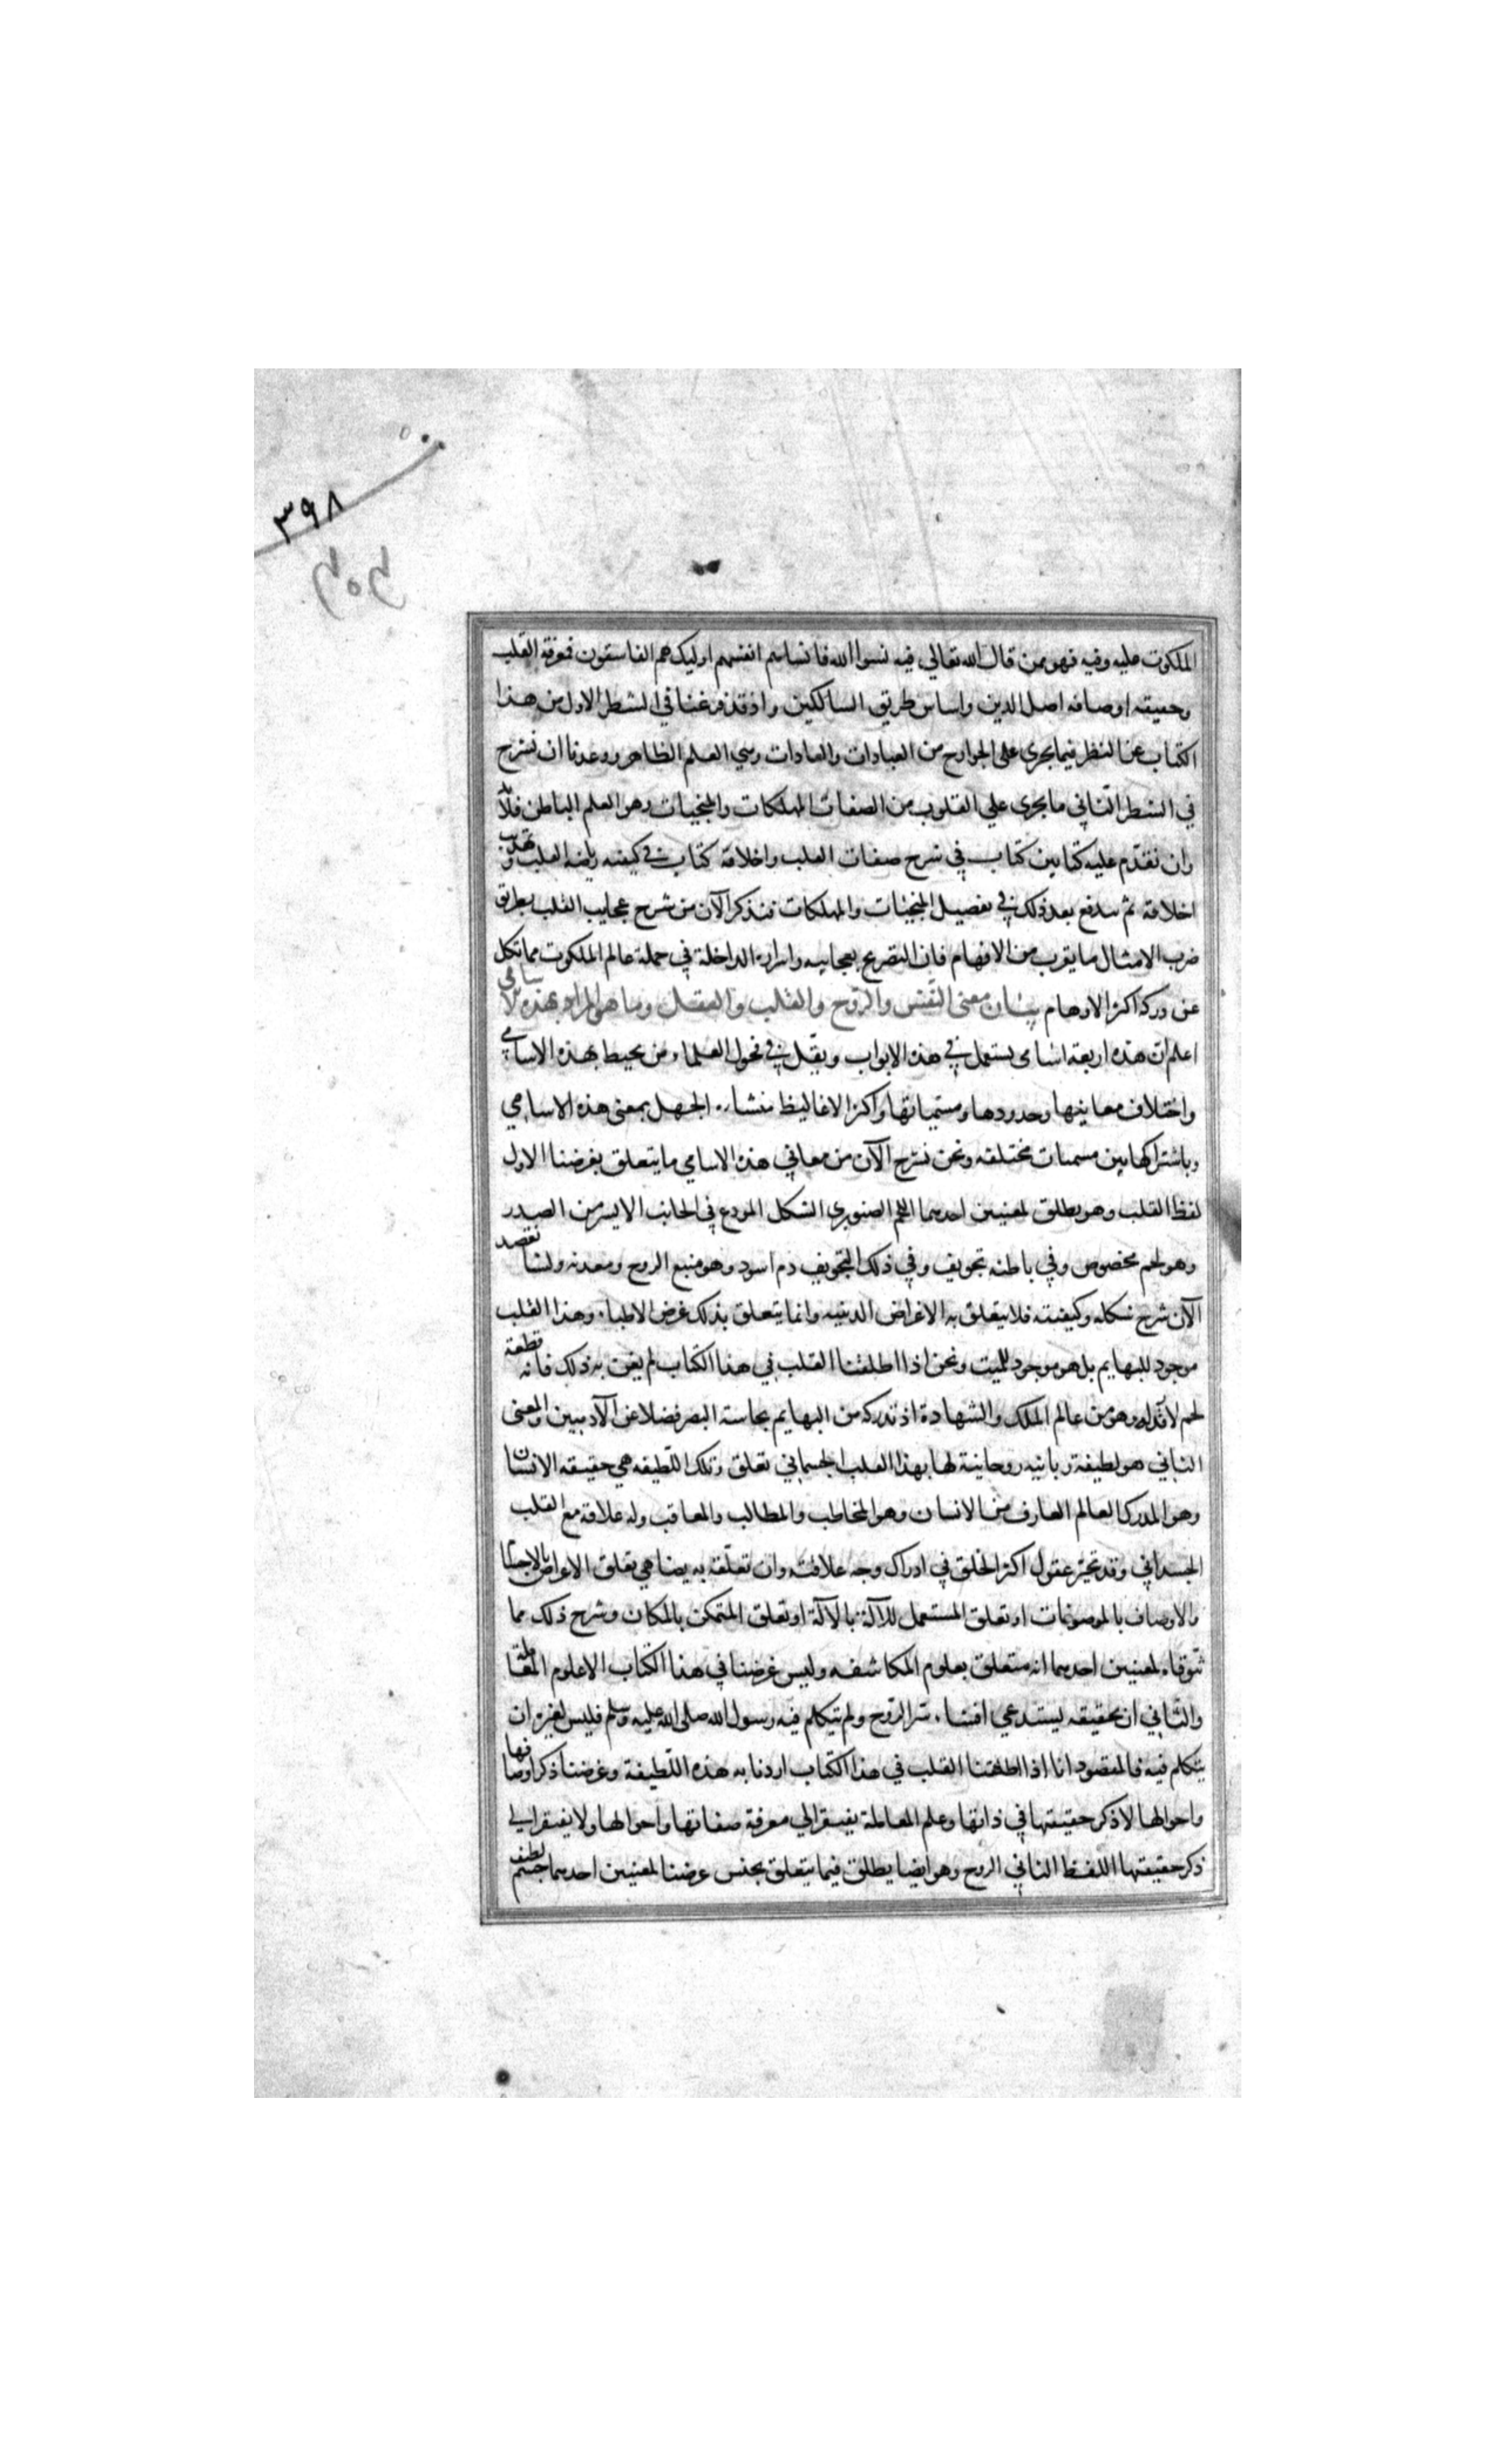 ٣٩٨
الملكوت عليه وفيه فهو ممن قال الله تعالي فيه نسوا الله فانساهم انفسهم اوليك هم الفاسقون فمعرفة القلب
وحقيقه اوصافه اصل الدين واساس طريق السالكين واذ قد فرغنا في الشطر الاول من هذا
الكتاب عن النظر فيما يجري على الجوارح من العبادات والعادات وهي العلم الظاهر ووعدنا ان نشرح
في الشطر الثاني ما يجري علي القلوب من الصفات المهلكات والمنجيات وهو العلم الباطن فلابد
وان نقدم عليه كتابين كتاب في شرح صفات القلب واخلاقه كتاب في كيفيه رياضه القلب وتهذيب
اخلاقه ثم نندفع بعد ذلك في تفصيل المنجيات والمهلكات فنذكر الآن من شرح عجايب القلب بطريق
ضرب الامثال ما يقرب من الافهام فان التصريح بعجايبه واسراره الداخلة في جملة عالم الملكوت مما تكل
عن دركه اكثر الاوهام بيان معنى النفس والروح والقلب والعقل وما هو المراد بهذه الاسامي
اعلم ان هذه اربعة اسامى يستعمل في هذه الابواب ويقل في فحول العلماء من يحيط بهذه الاسامي
واختلاف معاينها وحدودها ومسمياتها واكثر الاغاليط منشاء الجهل بمعنى هذه الاسامي
وباشتراكها بين مسميات مختلفه ونحن نشرح الآن من معاني هذه الاسامي ما يتعلق بغرضنا الاول
لفظ القلب وهو يطلق لمعنيين احدهما اللحم الصنوبري الشكل المودع في الجانب الايسر من الصدر
وهو لحم مخصوص وفي باطنه تجويف وفي ذلك التجويف دم اسود وهو منبع الروح ومعدنه ولسنا نقصد
الآن شرح شكله وكيفيته فلا يتعلق به الاغراض الدينيه وانما يتعلق بذلك غرض الاطباء وهذا القلب
موجود للبهايم بل هو موجود للميت ونحن اذا اطلقنا القلب في هذا الكتاب لم يعن به ذلك فانه قطعة
لحم لا قدر له وهو من عالم الملك والشهادة اذ تدركه من البهايم بحاسة البصر فضلا عن الآدميين والمعنى
الثاني هو لطيفة ربانيه روحانية لها بهذا القلب الجسماني تعلق وتلك اللطيفه هي حقيقه الانسان
وهو المدرك العالم العارف من الانسان وهو المخاطب والمطالب والمعاقب وله علاقة مع القلب
الجسداني وقد تحير عقول اكثر الخلق في ادراك وجه علاقته وان تعلقه به يضاهي تعلق الاعراض بالاجسام
والاوصاف بالموصوفات او تعلق المستعمل للآلة بالآلة او تعلق المتمكن بالمكان وشرح ذلك مما
نتوقاه لمعنيين احدهما انه متعلق بعلوم المكاشفه وليس غرضنا في هذا الكتاب الا علوم المعاملة
والثاني ان تحقيقه يستدعي افشاء سر الروح ولم يتكلم فيه رسول الله صلى الله عليه وسلم فليس لغيره ان
يتكلم فيه فالمقصود انا اذا اطلقنا القلب في هذا الكتاب اردنا به هذه اللطيفة وغرضنا ذكر اوصافها
واحوالها لا ذكر حقيقتها في ذاتها وعلم المعاملة يفتقر الي معرفة صفاتها واحوالها ولا يفتقر الي
ذكر حقيقتها اللفظ الثاني الروح وهو ايضا يطلق فيما يتعلق بجنس غرضنا لمعنيين احدهما جسم لطيف